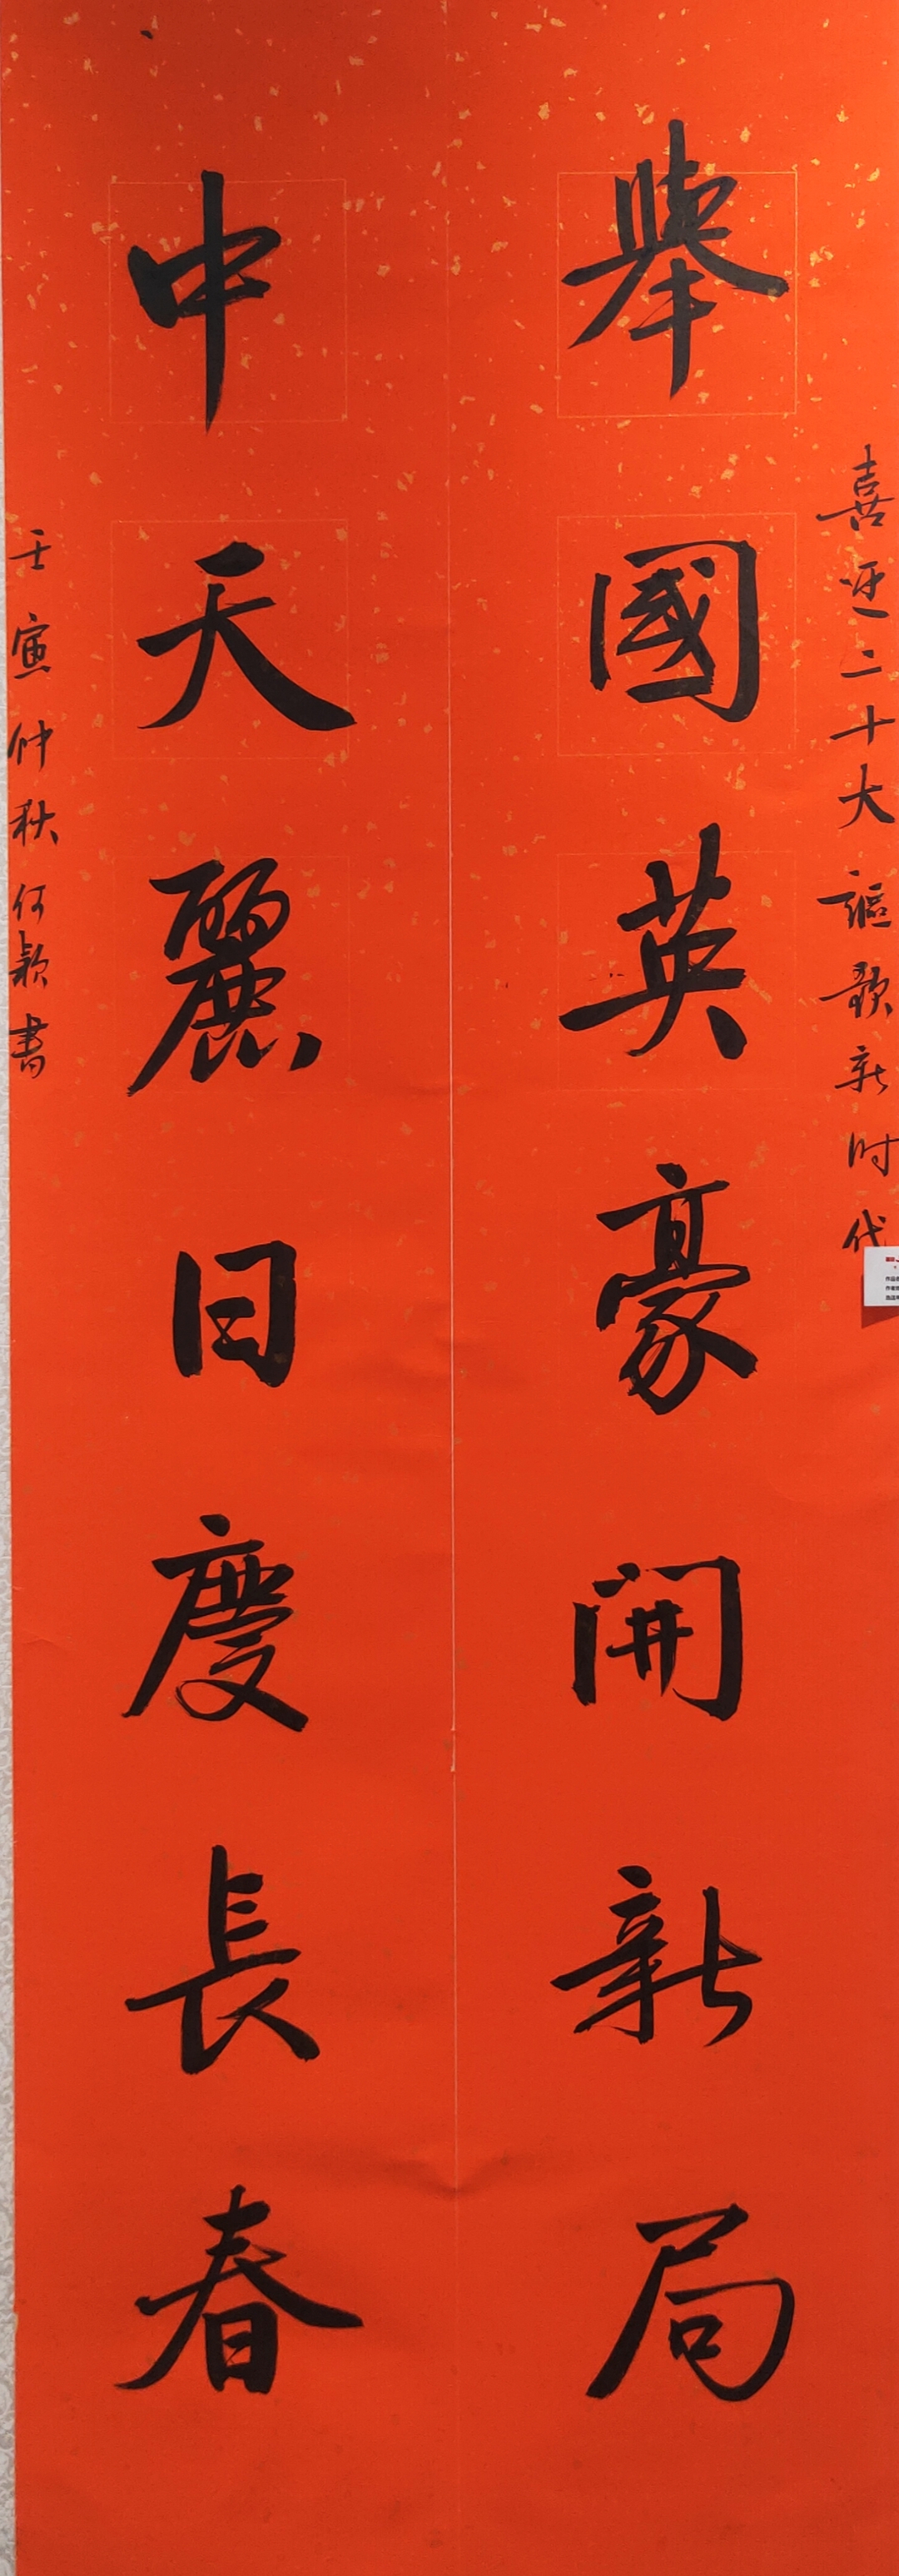 喜迎二十大謳歌新时代
舉國英豪開新局
中天麗日慶長春
壬寅仲秋何颖書